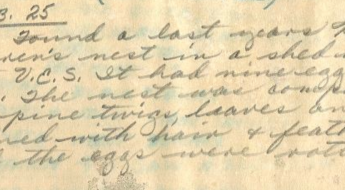 3. 25
Found a last years
ren's nest in a shed
V.C.S. It had nine egg
. The nest was comp
pine twigs, leaves an
ned with hair & feath
the eggs were rott